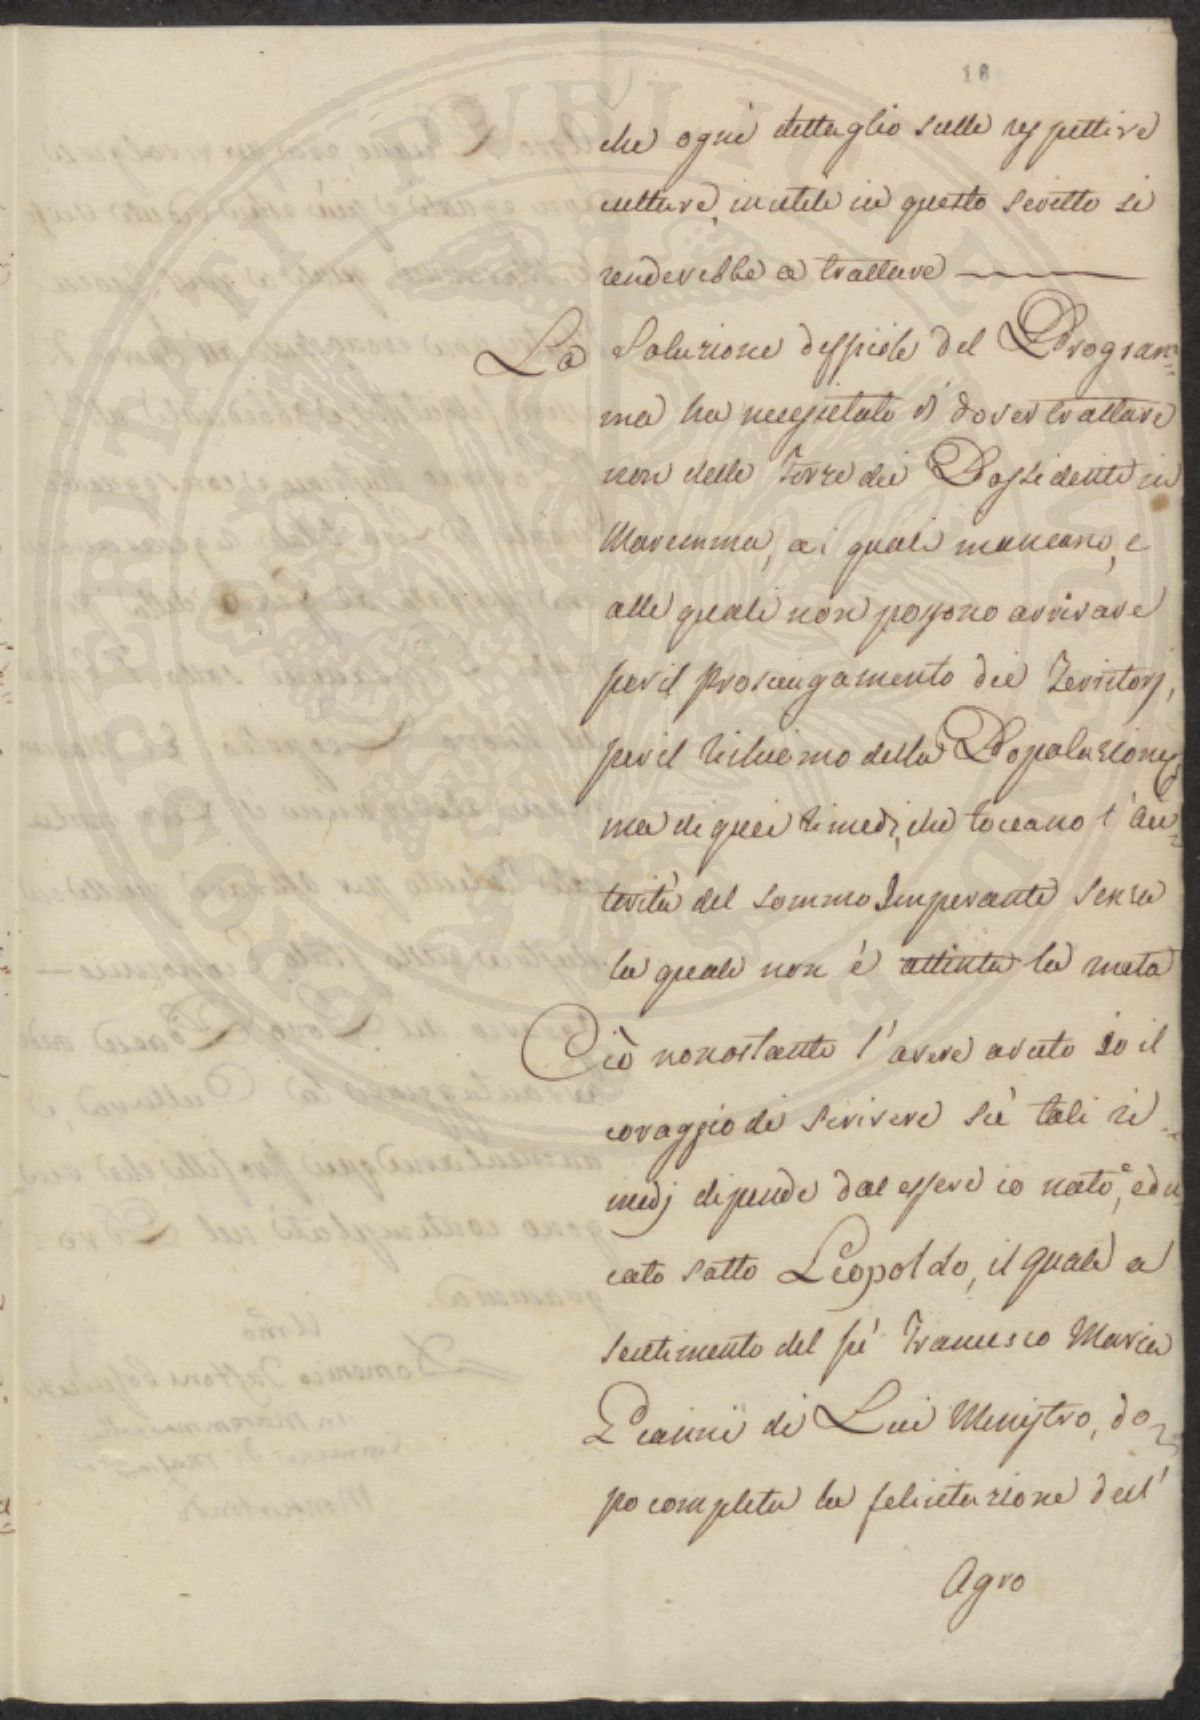 16
che ogni dettaglio sulle respettive
culture, inutile in questo scritto si
renderebbe a trattare
La Soluzione del Program=
ma ha necessitato di dover trattare
non delle Terre dei Possidenti in
Maremma, ai quali mancano, e
alle quali non possono arrivare
per il prosciugamento dei Territorj,
per il richiamo della Popolazione,
ma di quei rimedj, che toccano l'Au=
torità del sommo Imperante senza
la quale non è attinta la meta
Ciò nonostante l'avere avuto io il
coraggio di scrivere sù tali ri=
medj dipende dal essere io nato, e edu
cato sotto Leopoldo, il quale a
sentimento del fù Francesco Maria
Gianni di Lui Ministro, do=
po completa la felicitazione dell'
Agro